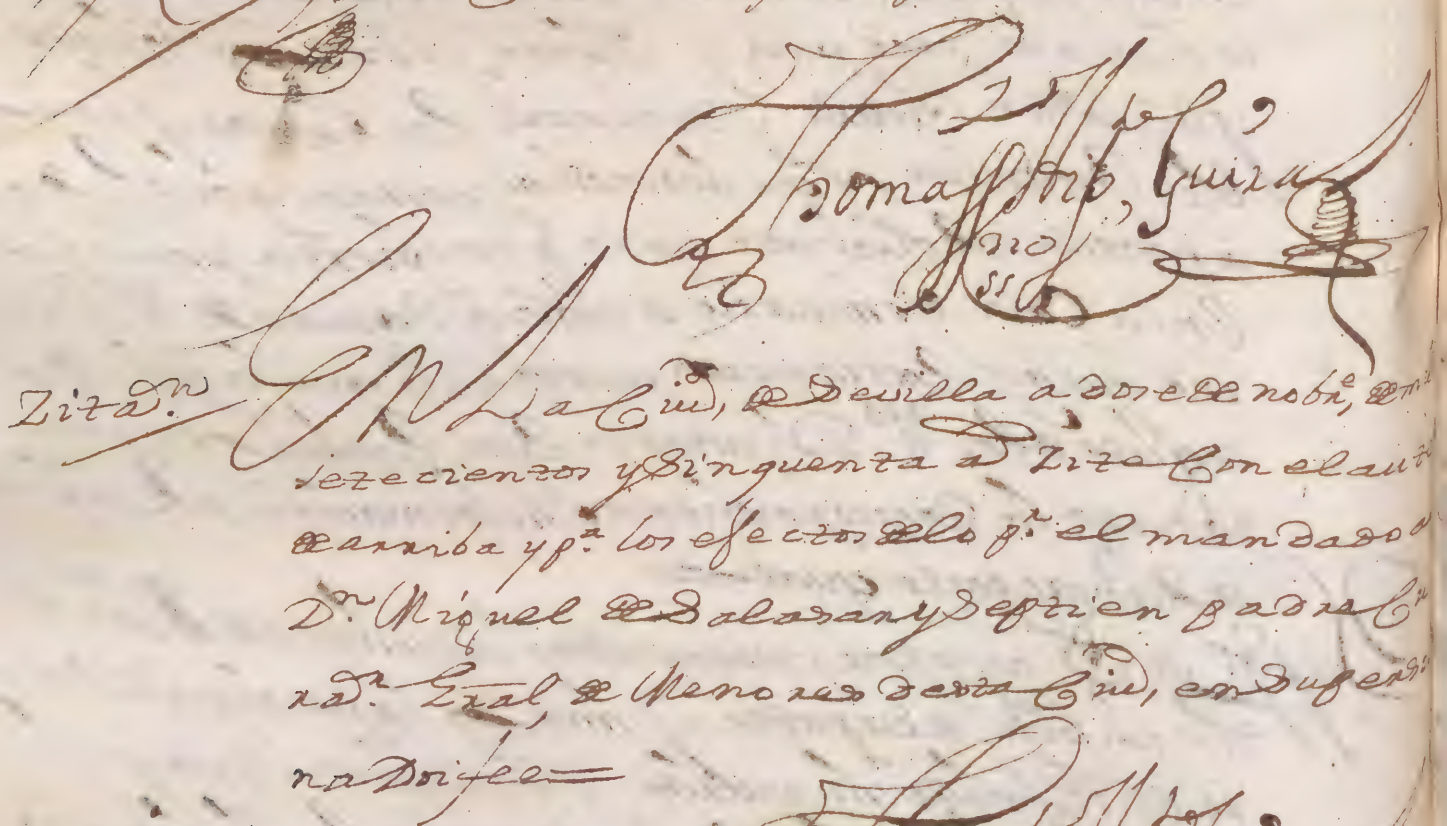 Thomas Ortiz de Guira
no
ss
Zitaon.
En La Ciud, de Sevilla a dose de nobre, de mil
setecientos y Sinquenta as Zite Con el auto
de arriba y pa. los efectos de lo pr. el mandado a
Dn. Miguel de Salasar y Septien padre Cu
rador. Gral, de Menores desta Ciud, en Su perso
na Doi fee